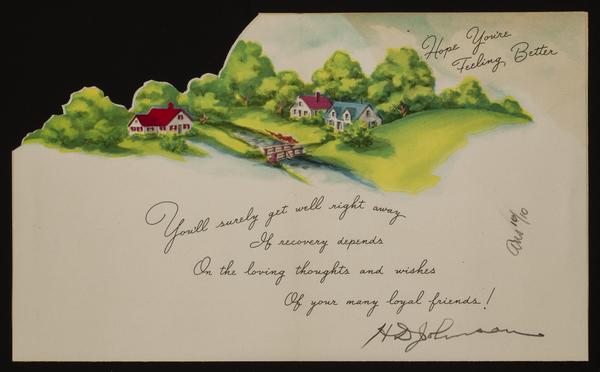 Hope You're
Feeling Better
You'll surely get well right away
If recovery depends
On the loving thoughts and wishes
Of your many loyal friends!
H D Johnson
10/10